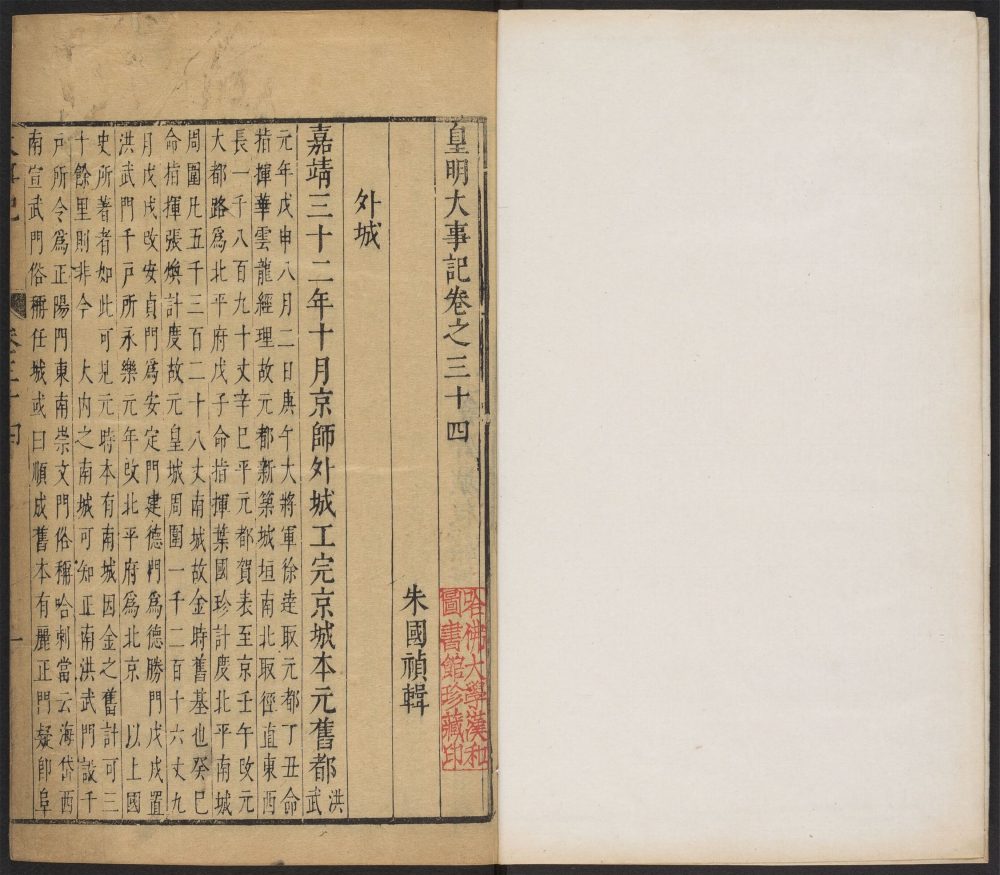 皇明大事記卷之三十四
朱國禎輯
哈佛大學漢和
圖書館珍藏印
外城
嘉靖三十二年十月京師外城工完京城本元舊都洪武
元年戊申八月二日庚午大將軍徐達取元都丁丑命
指揮華雲龍經理故元都新築城垣南北取徑直東西
長一千八百九十丈辛巳平元都賀表至京壬午改元
大都路爲北平府戊子命指揮葉國珍計度北平南城
周圍凡五千三百二十八丈南城故金時舊基也癸巳
命指揮張煥計度故元皇城周圍一千二百十六丈九
月戊戌改安貞門爲安定門建德門爲德勝門戊戌置
洪武門千戸所永樂元年改北平府爲北京　以上國
史所著者如此可見元時本有南城因金之舊計可三
十餘里則非今　大内之南城可知正南洪武門設千
戸所令爲正陽門東南崇文門俗稱哈刺當云海岱西
南宣武門俗稱任城或曰順成舊本有麗正門疑卽阜
大事記
卷三十四
一